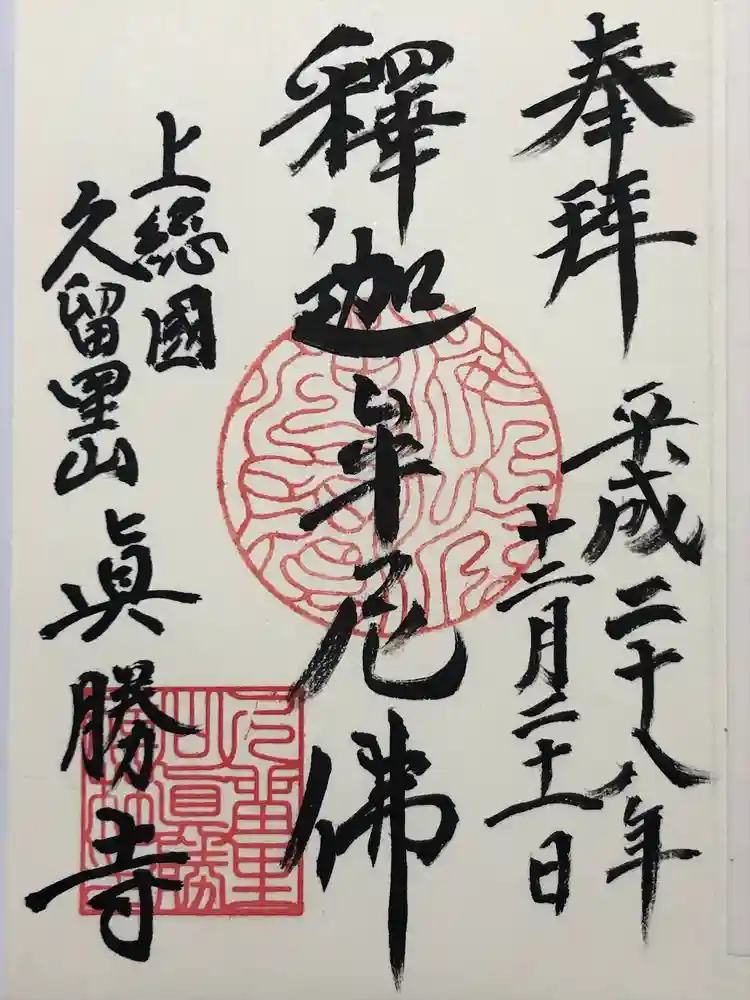 奉拜
平成二十八年
十二月二十一日
釋迦牟尼佛
上総國
久留里山
眞勝寺